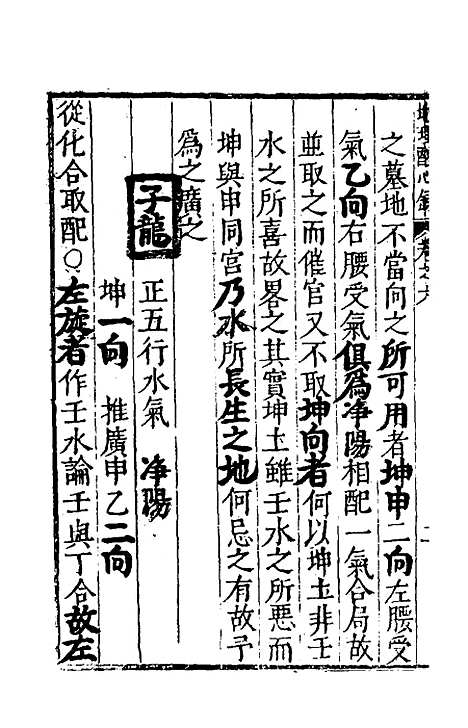 地理酉心錄 卷之六
之墓地不當向之所可用者坤申二向左腰受
氣乙向右腰受氣俱爲净陽相配一氣合局故
並取之而催官又不取坤向者何以坤土非壬
水之所喜故畧之其實坤土雖壬水之所惡而
坤與申同宮乃水所長生之地何忌之有故予
爲之廣之
子龍 正五行水氣 净陽
坤一向 推廣申乙二向
從化合取配○左旋者作壬水論壬與丁合故左